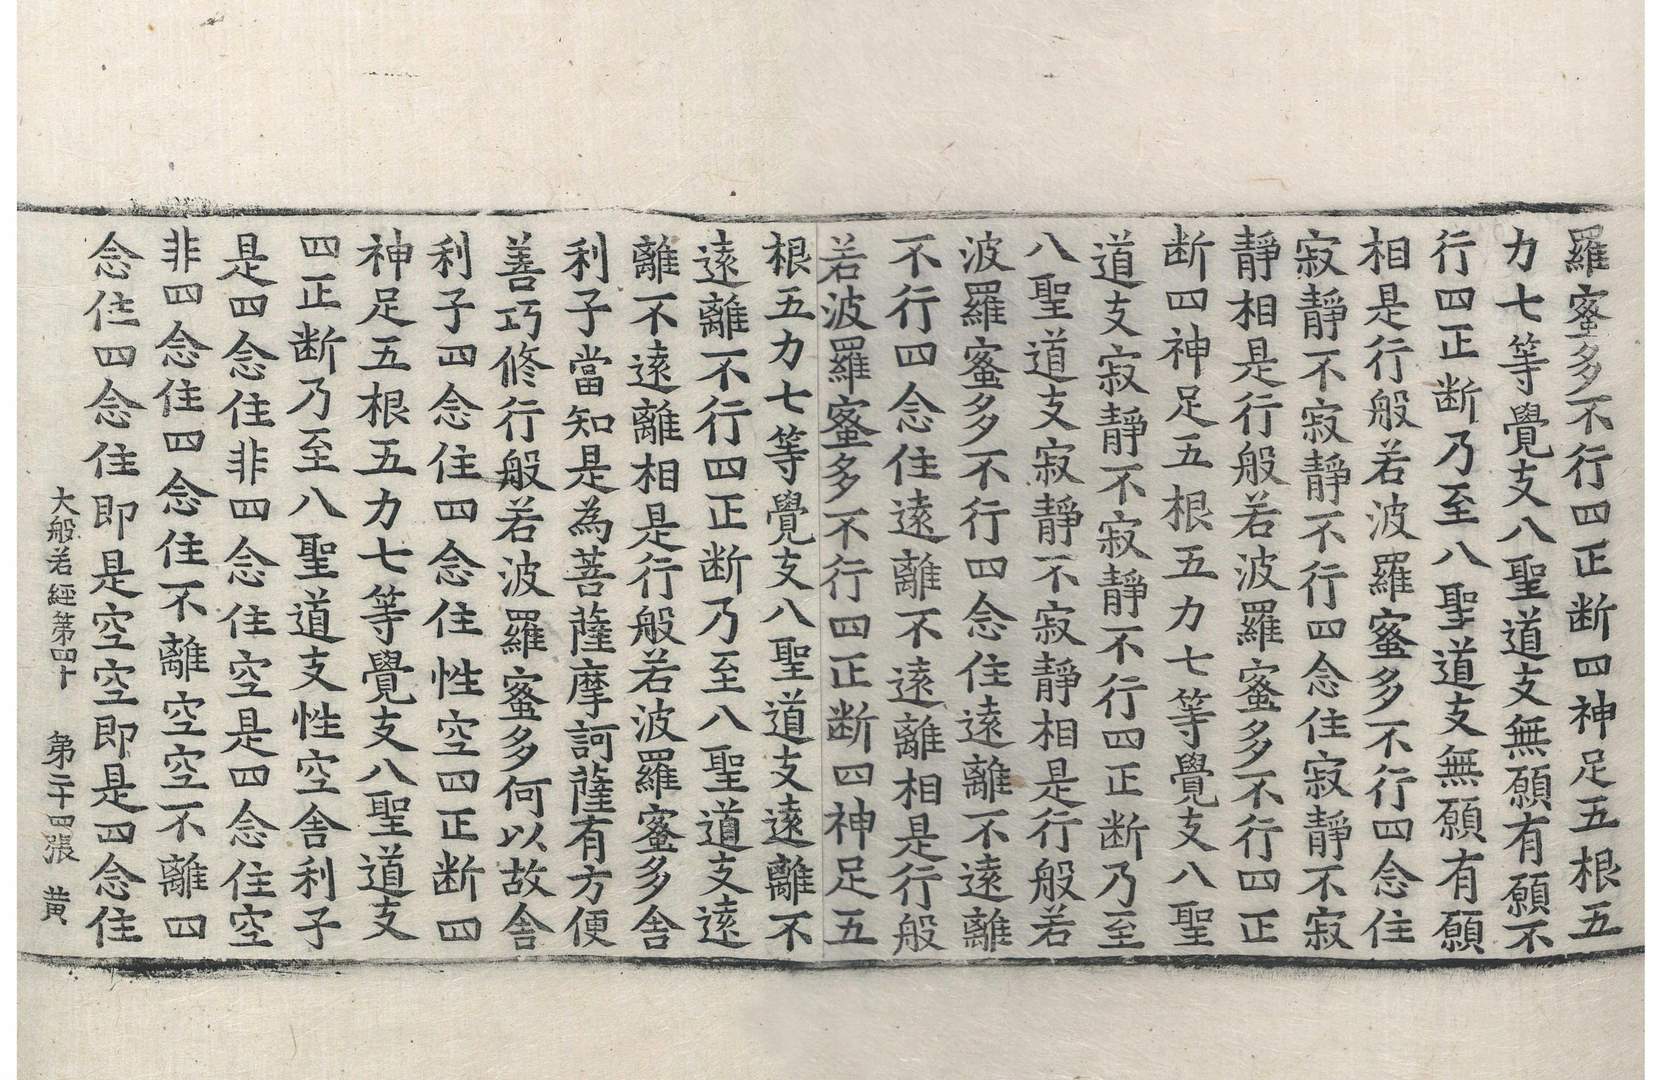 羅蜜多不行四正断四神足五根五
力七等覺支八聖道支無願有願不
行四正断乃至八聖道支無願有願
相是行般若波羅蜜多不行四念住
寂靜不寂靜不行四念住寂靜不寂
靜相是行般若波羅蜜多不行四正
断四神足五根五力七等覺支八聖
道支寂靜不寂靜不行四正断乃至
八聖道支寂靜不寂靜相是行般若
波羅蜜多不行四念住遠離不遠離
不行四念住遠離不遠離相是行般
若波羅蜜多不行四正断四神足五
根五力七等覺支八聖道支遠離不
遠離不行四正断乃至八聖道支遠
離不遠離相是行般若波羅蜜多舍
利子當知是為菩薩摩訶薩有方便
善巧修行般若波羅蜜多何以故舍
利子四念住四念住性空四正断四
神足五根五力七等覺支八聖道支
四正断乃至八聖道支性空舍利子
是四念住非四念住空是四念住空
非四念住四念住不離空空不離四
念住四念住即是空空即是四念住
大般若經第四十 第二十四張 黄